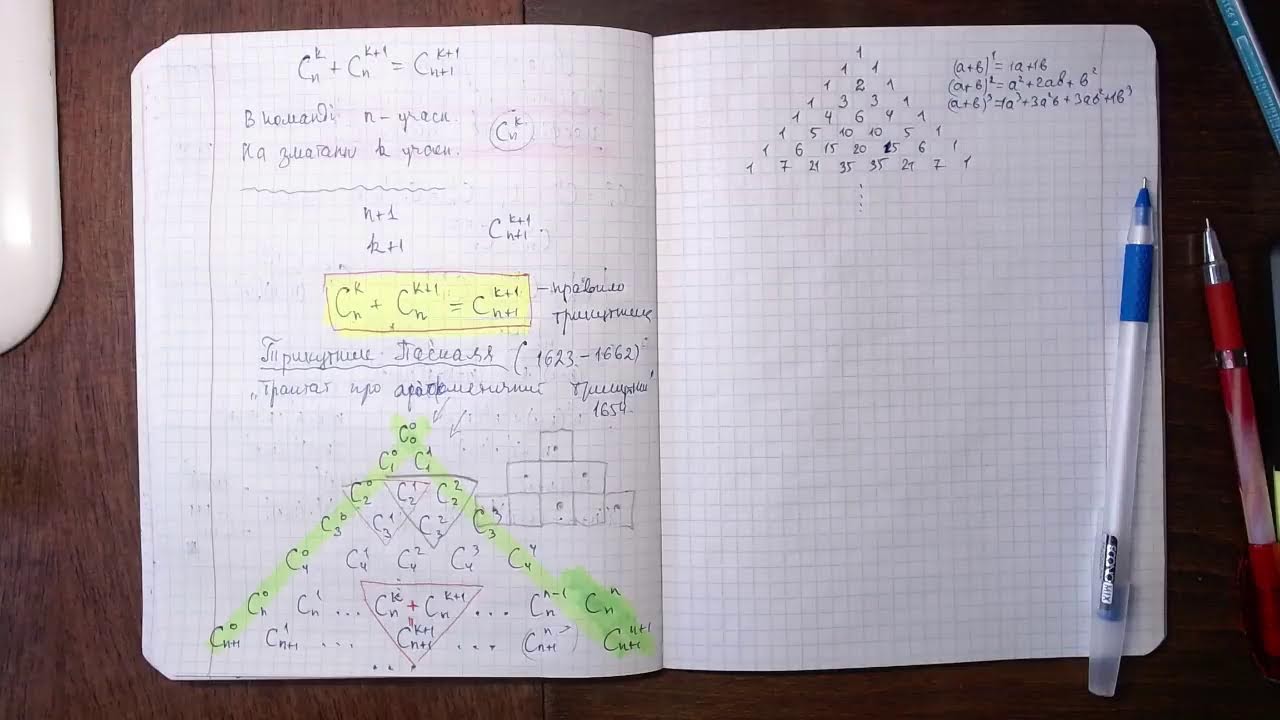 C_n^k + C_n^{k+1} = C_{n+1}^{k+1}
В команді n - учасн. C_n^k
На змаганні k учасн.
n+1
k+1 C_{n+1}^{k+1}.
C_n^k + C_n^{k+1} = C_{n+1}^{k+1} - правило
трикутника
Трикутник Паскаля (1623 - 1662)
„Трактат про арифметичний трикутник"
1654
C_0^0
C_1^0 C_1^1
C_2^0 C_2^1 C_2^2
C_3^0 C_3^1 C_3^2 C_3^3
C_4^0 C_4^1 C_4^2 C_4^3 C_4^4
C_n^0 C_n^1 ... C_n^k + C_n^{k+1} ... C_n^{n-1} C_n^n
C_{n+1}^0 C_{n+1}^1 ... C_{n+1}^{k+1} ... C_{n+1}^n C_{n+1}^{n+1}
...
1
1 1
1 2 1
1 3 3 1
1 4 6 4 1
1 5 10 10 5 1
1 6 15 20 15 6 1
1 7 21 35 35 21 7 1
(a+b)^1 = 1a+1b
(a+b)^2 = a^2 + 2ab + b^2
(a+b)^3 = 1a^3 + 3a^2b + 3ab^2 + 1b^3
ECONO MIX